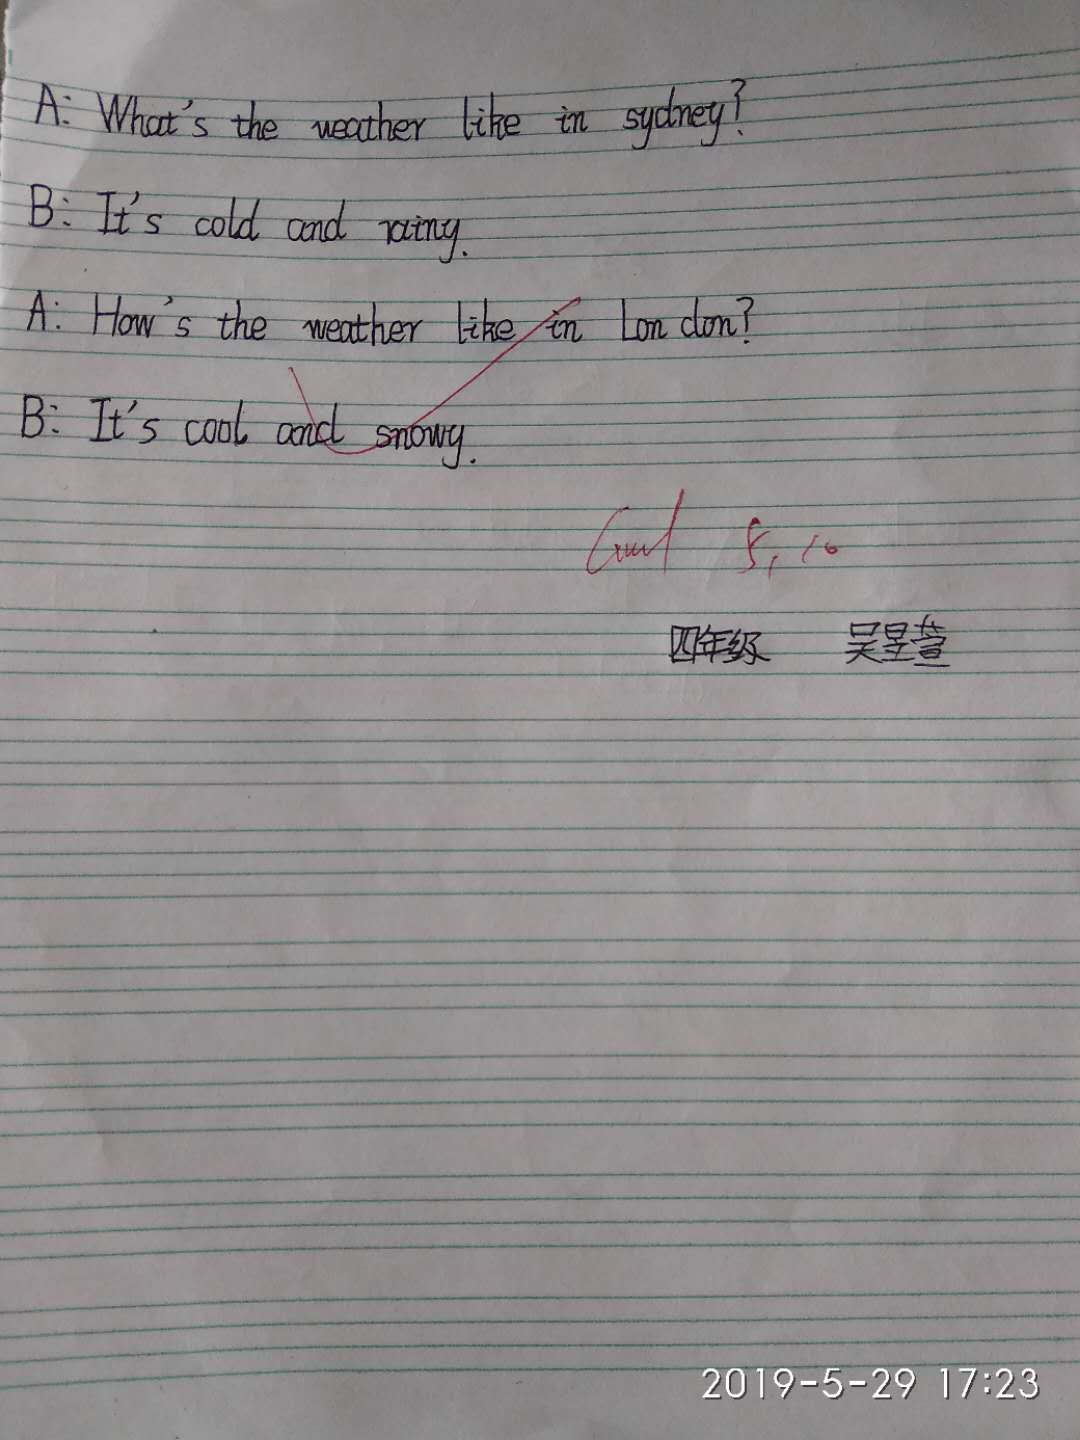 A: What's the weather like in sydney?
B: It's cold and rainy.
A: How's the weather like in London?
B: It's cool and snowy.
Good 5.10
四年级 吴昱萱
2019-5-29 17:23